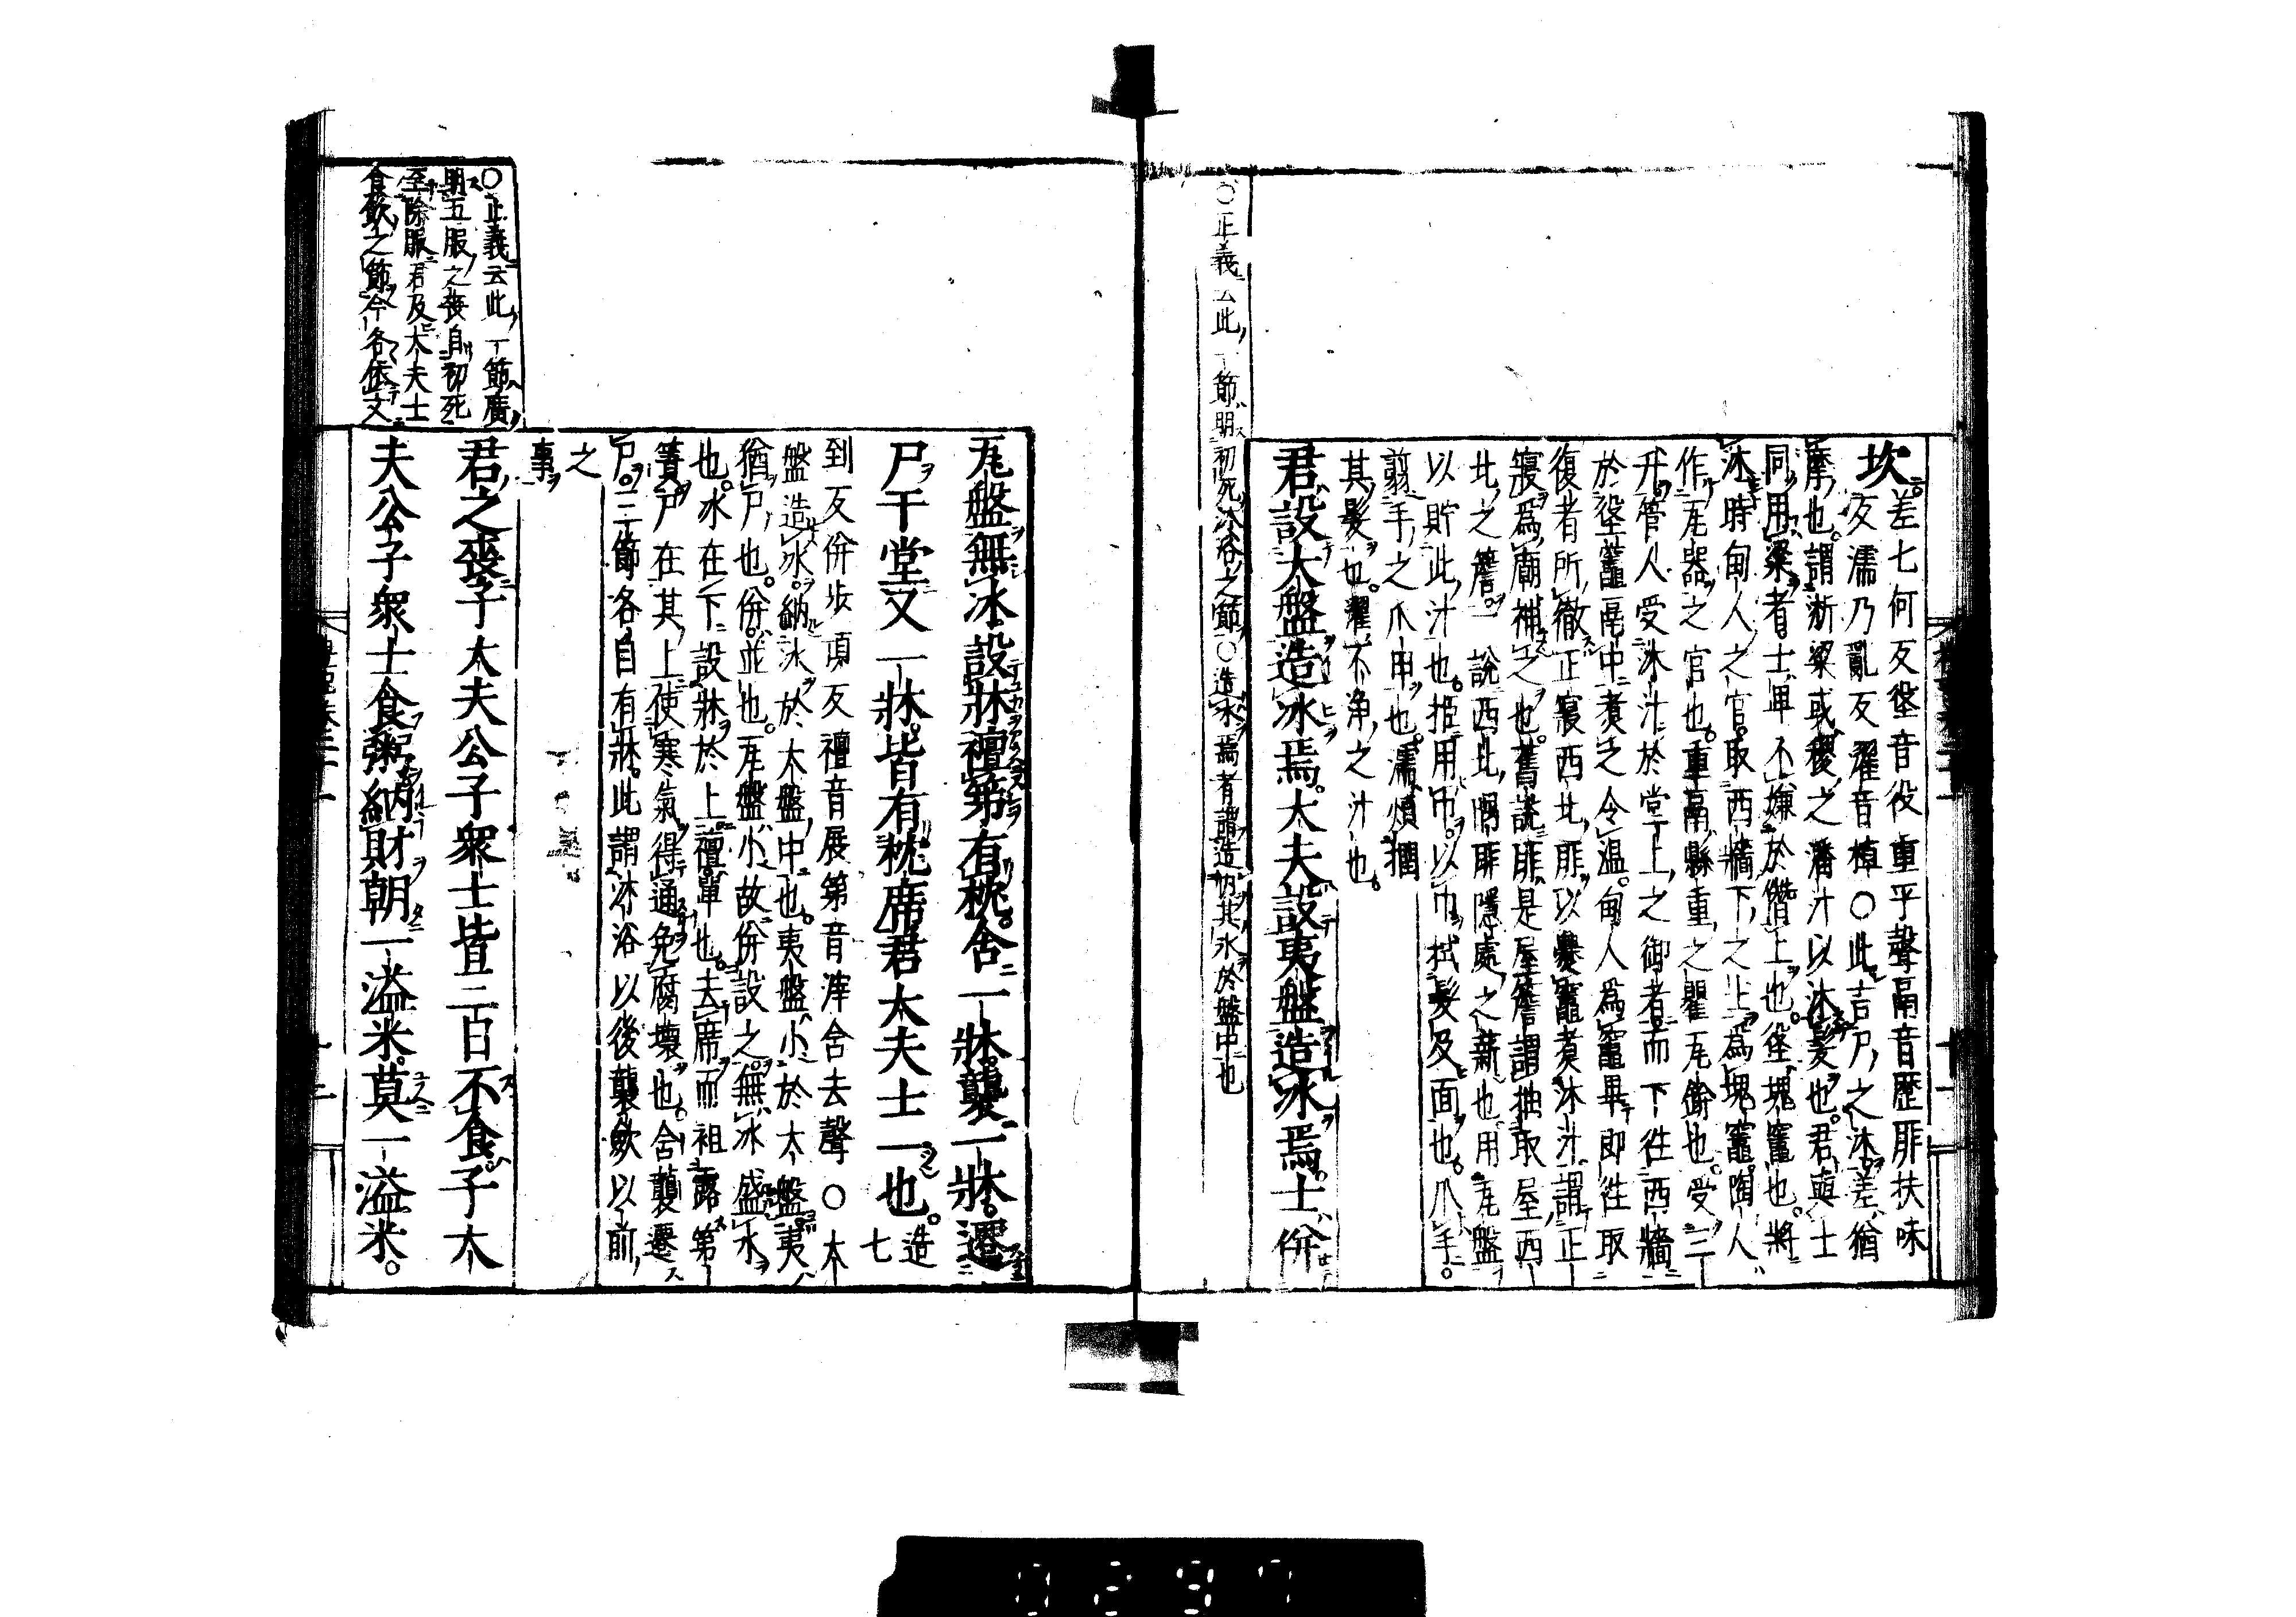 坎差七何反垼音役重平聲鬲音歴厞扶味
反濡乃亂反濯音棹○此言尸之沐差猶
摩也謂淅粱或稷之潘汁以沐髮也君與士
同用粱者士卑不嫌於僭上也垼塊竈也將
沐時甸人之官取西牆下之土爲塊竈陶人
作瓦器之官也重鬲縣重之罌瓦缾也受三
升管人受沐汁於堂上之御者而下往西牆
於垼竈鬲中煑之令温甸人爲竈畢即往取
復者所徹正寢西北厞以爨竈煑沐汁謂正
寢爲廟神之也舊說厞是屋簷謂抽取屋西
北之簷一說西北隅厞隱處之薪也用瓦盤
以貯此汁也挋用巾以巾拭髮及面也爪手
翦手之爪甲也濡煩撋
其髮也濯不浄之汁也
君設大盤造冰焉大夫設夷盤造冰焉士併
○正義云此一節明初死沐浴之節○造冰焉者謂造内其冰於盤中也
瓦盤無冰設牀襢第有枕含一牀襲一牀遷
尸于堂又一牀皆有枕席君大夫士一也造七
到反併步頂反襢音展第音滓含去聲○大
盤造冰納冰於大盤中也夷盤小於大盤夷
猶尸也併並也瓦盤小故併設之無冰盛水
也冰在下設牀於上襢單也去席而袒露第
簀尸在其上使寒氣得通免腐壞也含襲遷
尸三節各自有牀此謂沐浴以後襲斂以前
之
事
君之喪子大夫公子衆士皆三日不食子大
夫公子衆士食粥納財朝一溢米莫一溢米
○正義云此一節廣
明五服之喪自初死
至除服君及大夫士
食飲之節今各依文
0297